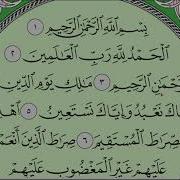 بِسْمِ ٱللَّهِ ٱلرَّحْمَٰنِ ٱلرَّحِيمِ ١
ٱلْحَمْدُ لِلَّهِ رَبِّ ٱلْعَٰلَمِينَ ٢
حْمَٰنِ ٱلرَّحِيمِ ٣ مَٰلِكِ يَوْمِ ٱلدِّينِ
كَ نَعْبُدُ وَإِيَّاكَ نَسْتَعِينُ ٥ ٱهْدِ
صِرَٰطَ ٱلْمُسْتَقِيمَ ٦ صِرَٰطَ ٱلَّذِينَ أَنْعَمْ
عَلَيْهِمْ غَيْرِ ٱلْمَغْضُوبِ عَلَيْهِمْ